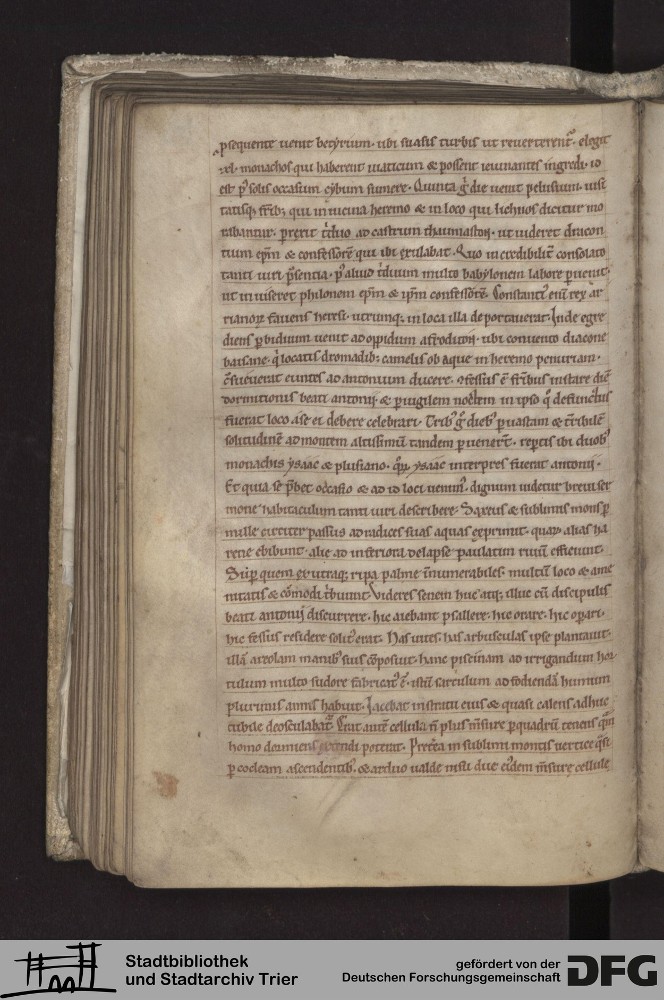 psequente uenit betyrium· ubi suasis turbis ut reuerterent᷑· elegit
.xl. monachos qui haberent uiaticum & possent ieiunantes ingredi· id
est p᷒ solis occasum cybum sumere· Quinta g̊ die uenit pelusium· uisi
tatisq; frīb; qui in uicina heremo & in loco qui lichnos dicitur mo
rabantur· perexit t'duo ad castrum thaumiastoꝝ· ut uideret dracon
tium ep̄m & confessorē qui ibi exulabat· Quo incredibilit̄ consolato
tanti uiri p̄sentia· p᷒ aliud t'duum multo babylonem labore p̱uenit·
ut inuiseret philonem ep̄m & ip̄m confessorē· Constanti᷒ enī rex ar
rianoꝝ fauens heresi· utrunq; in loca illa deportauerat· Inde egre
diens p̱ biduum uenit ad oppidum afroditoṇ· ubi conuento diacone
baisane· q' locatis dromadib; camelis ob aque in heremo penuriam·
c̄sueuerat euntes ad antonium ducere· 9fessus ē frīb᷒ instare diē
dormitionis beati antonij· & p̱uigilem noctem in ipso q̊ defunct᷒
fuerat loco a se ei debere celebrari· Trib᷒ g̊ dieb᷒ p̱ uastam & t̄ribilē
solitudinē ad montem altissimū tandem p̱uenert̄· rep̱tis ibi duob᷒
monachis ysaac & plusiano· quoꝝ ysaac interpres fuerat antonij·
Et quia se p̄bet occasio & ad id loci uenim᷒· dignum uidetur breui ser
mone habitaculum tanti uiri describere· Saxeus & sublimis mons p̱
mille circiter passus ad radices suas aquas exprimit· quaꝝ alias ha
rene ebibunt· alie ad inferiora delapse paulatim riuū efficiunt·
Sup̱ quem ex utraq; ripa palme īnumerabiles· multū loco & ame
nitatis & cōmodi t'buunt· Videres senem huc atq; illuc cū discipulis
beati antonij discurrere· hic aiebant psallere· hic orare· hic op̱ari·
hic fessus residere solit᷒ erat· Has uites· has arbusculas ipse plantauit·
illā areolam manib᷒ suis cōposuit· hanc piscinam ad irrigandum hor
tulum multo sudore fabricat᷒ ē· istū sarculum ad fodiendā humum
pluribus annis habuit· Iacebat in stratu eius & quasi calens adhuc
cubile deosculabat᷑· Erat autē cellula n̄ plus m̄sure p̱ quadrū tenens q̄m
homo dormiens extendi poterat· P̄ret̄ea in sublimi montis uertice q̊si
p̱ cocleam ascendentib᷒· & arduo ualde nisu due ei᷒dem m̄surę cellulę
Stadtbibliothek
und Stadtarchiv Trier
gefördert von der
Deutschen Forschungsgemeinschaft
DFG